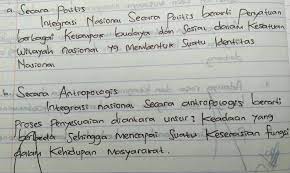 a. Secara Politis
Integrasi Nasional Secara Politis berarti Penyatuan
berbagai Kelompok budaya dan Sosial dalam Kesatuan
Wilayah nasional yg membentuk Suatu Identitas
Nasional
b. Secara Antropologis
Integrasi nasional Secara antropologis berarti
Proses Penyesuaian diantara unsur2 Keadaan yang
berbeda Sehingga Mencapai Suatu Keserasian fungsi
dalam Kehidupan Masyarakat.